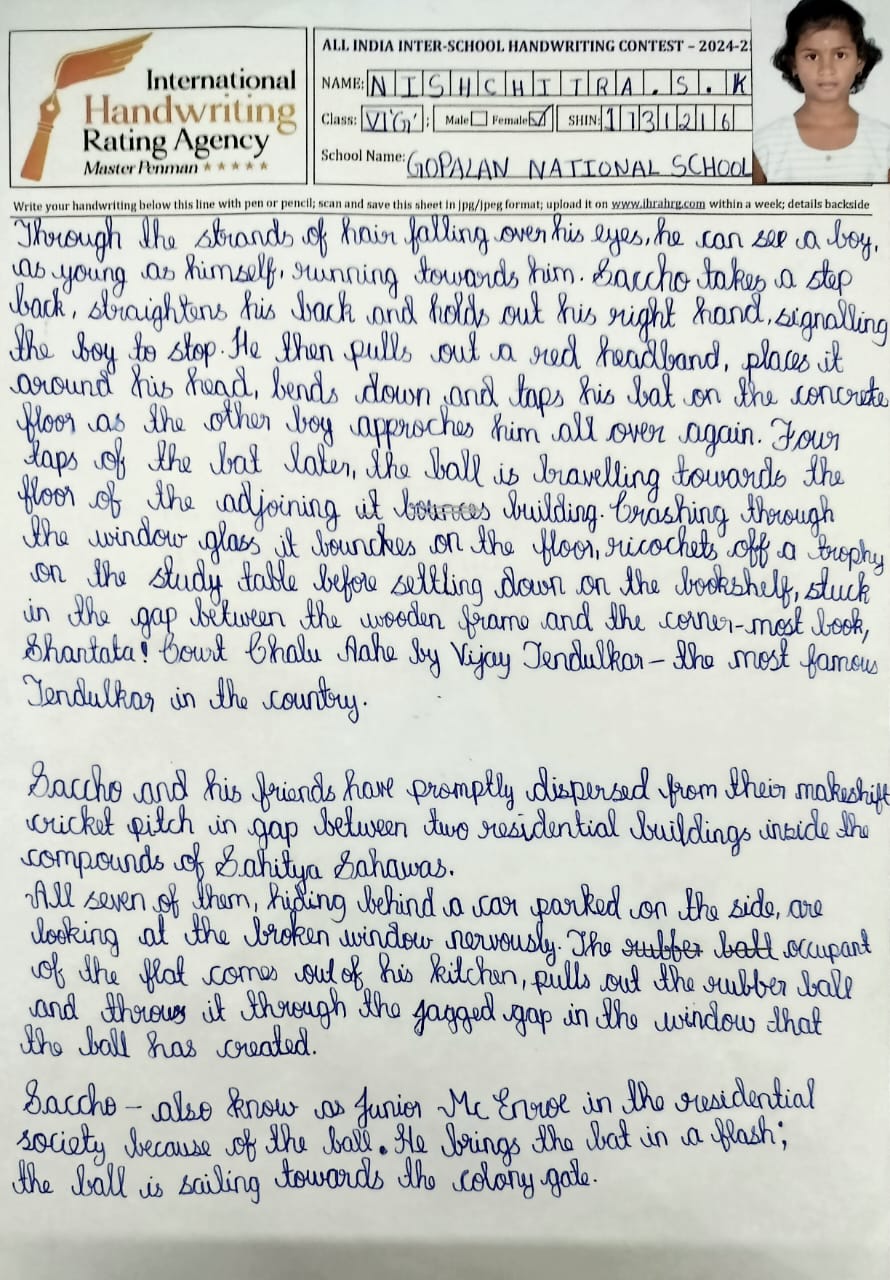 International
Handwriting
Rating Agency
Master Penman ★★★★★
ALL INDIA INTER-SCHOOL HANDWRITING CONTEST – 2024-2
NAME: NISHCHITRA.S.K
Class: VI 'G' : Male Female SHIN: 1731216
School Name: GOPALAN NATIONAL SCHOOL
Write your handwriting below this line with pen or pencil; scan and save this sheet in jpg/jpeg format; upload it on www.ihrahrg.com within a week; details backside
Through the strands of hair falling over his eyes, he can see a boy,
as young as himself, running towards him. Saccho takes a step
back, straightens his back and holds out his right hand, signalling
the boy to stop. He then pulls out a red headband, places it
around his head, bends down and taps his bat on the concrete
floor as the other boy approches him all over again. Four
taps of the bat later, the ball is travelling towards the
floor of the adjoining it bounces building. Crashing through
the window glass it bounches on the floor, ricochets off a trophy
on the study table before settling down on the bookshelf, stuck
in the gap between the wooden frame and the corner-most book,
Shantata! Court Chalu Aahe by Vijay Tendulkar – the most famous
Tendulkar in the country.
Saccho and his friends have promptly dispersed from their makeshift
cricket pitch in gap between two residential buildings inside the
compounds of Sahitya Sahawas.
All seven of them, hiding behind a car parked on the side, are
looking at the broken window nervously. The rubber ball occupant
of the flat comes out of his kitchen, pulls out the rubber ball
and throws it through the jagged gap in the window that
the ball has created.
Saccho – also know as Junior Mc Enroe in the residential
society because of the ball. He brings the bat in a flash;
the ball is sailing towards the colony gate.